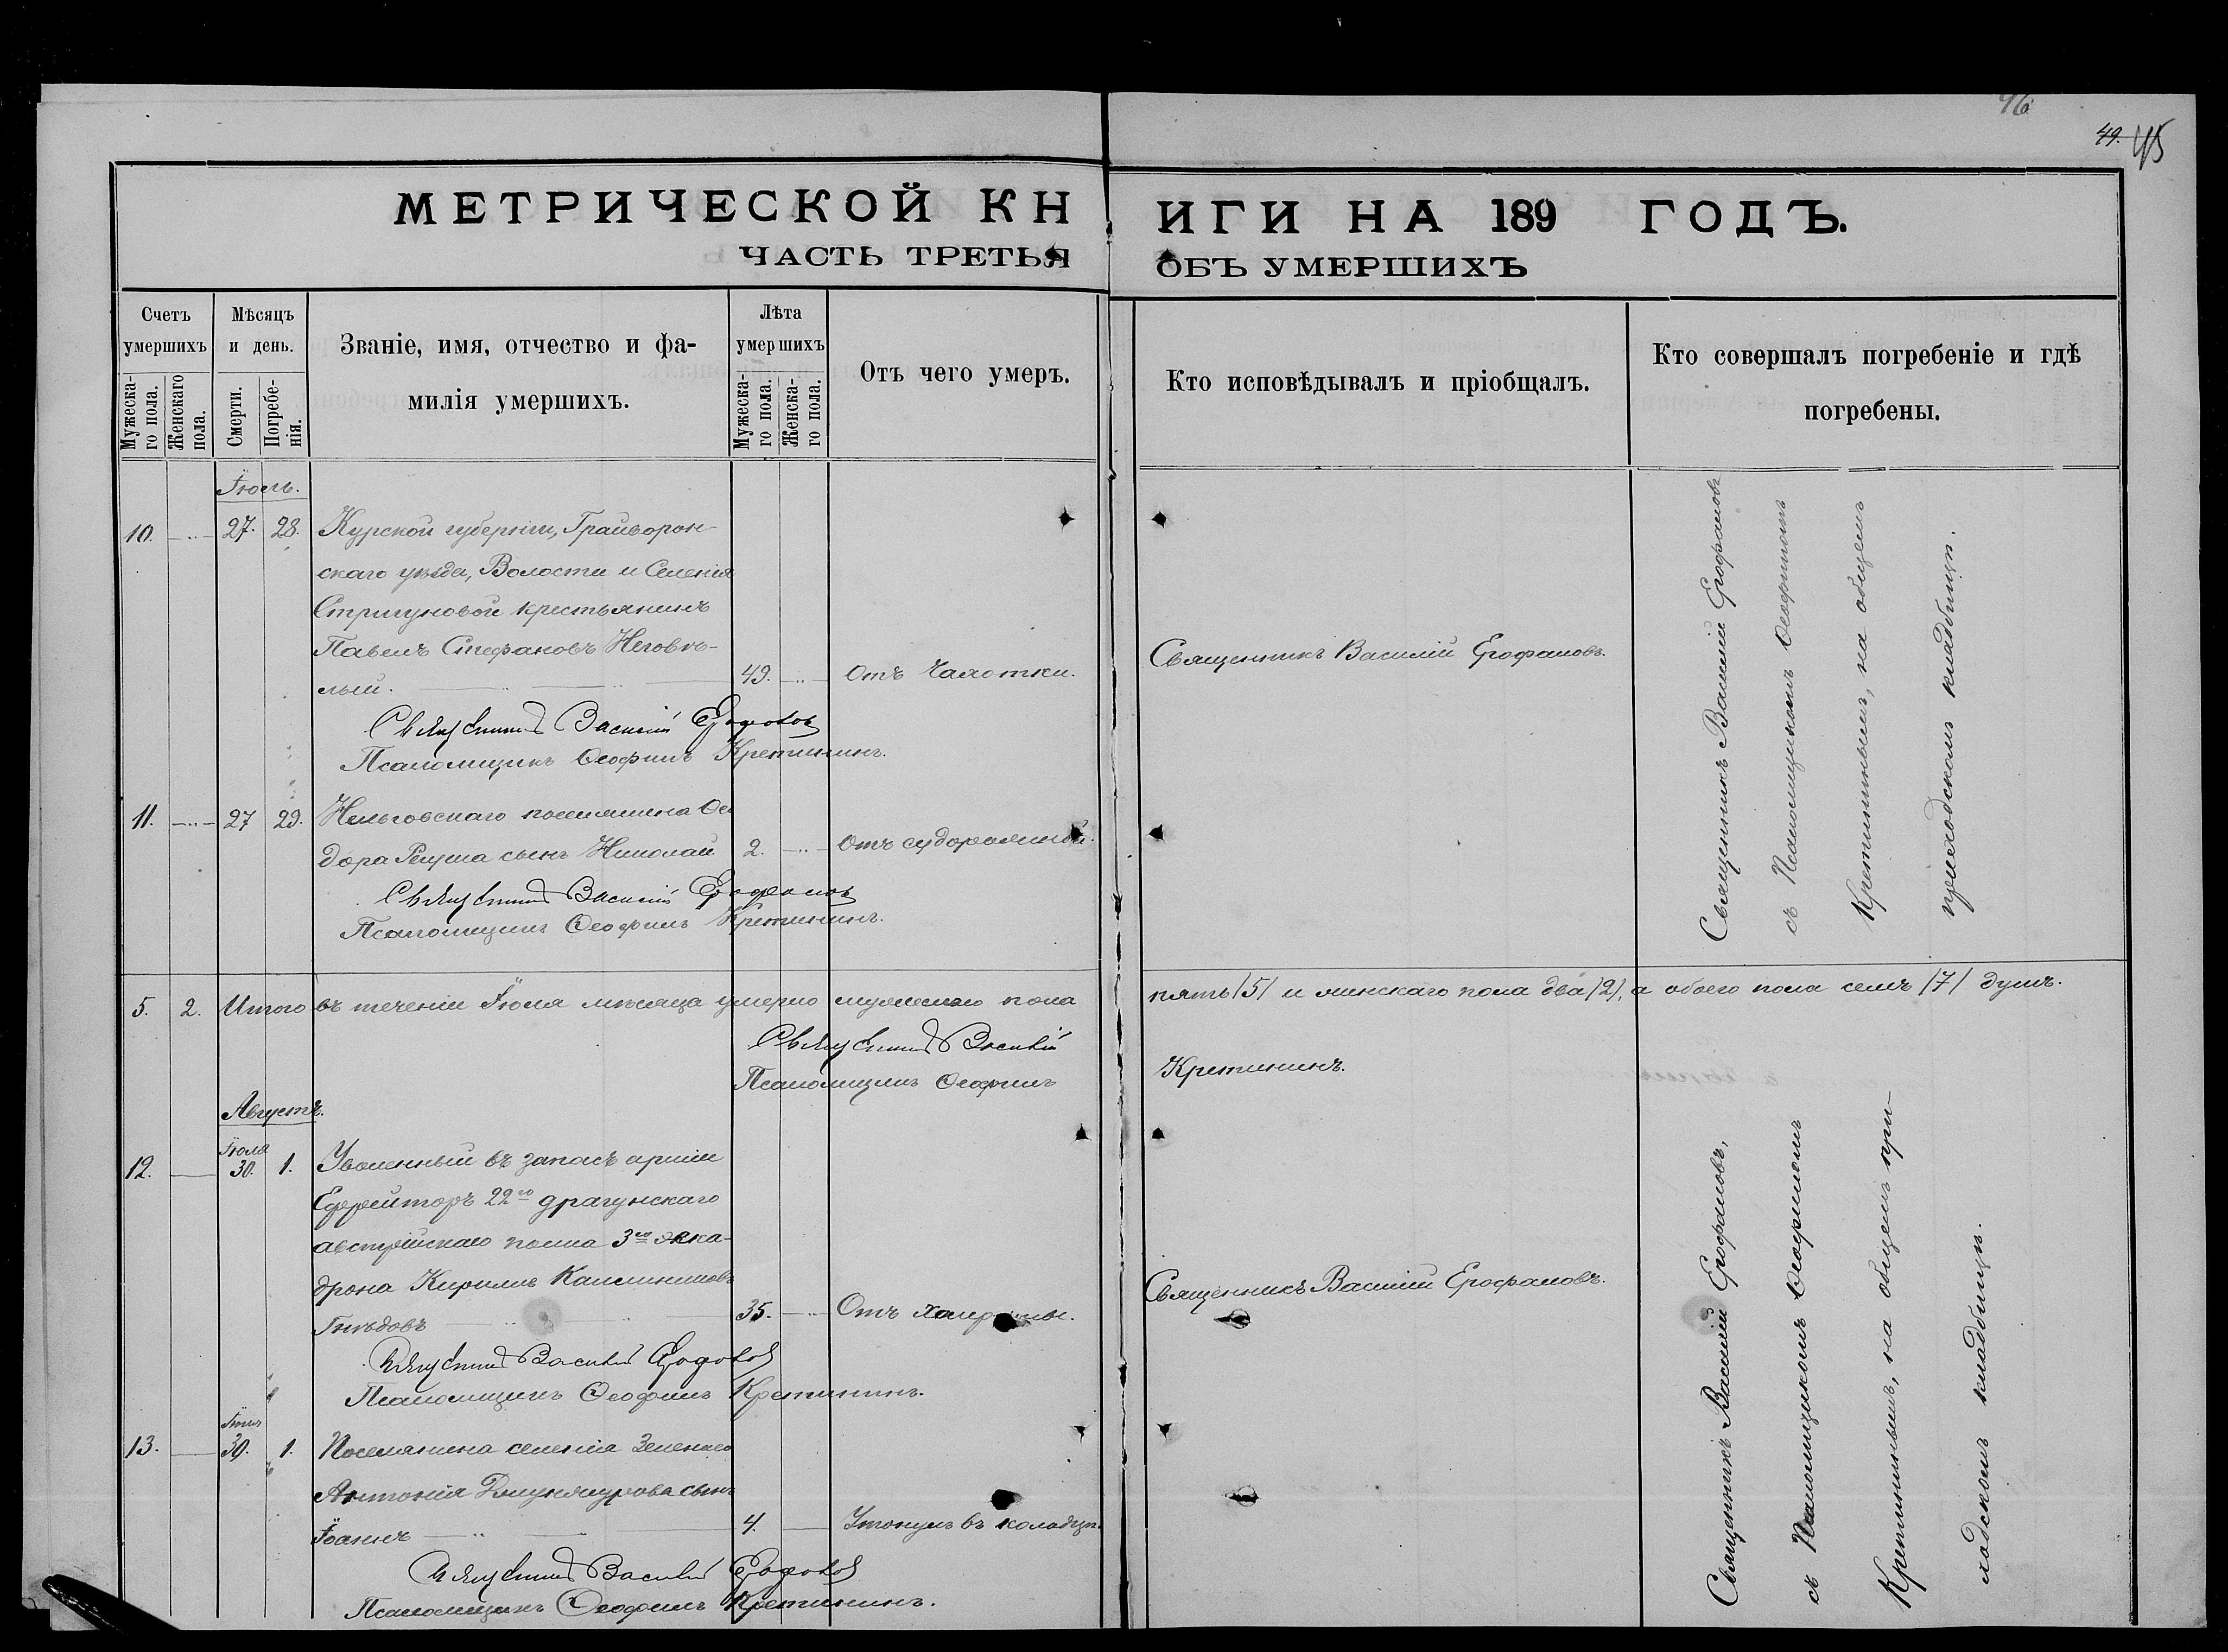 46
49. 45
МЕТРИЧЕСКОЙ КНИГИ НА 189 ГОДЪ.
ЧАСТЬ ТРЕТЬЯ ОБЪ УМЕРШИХЪ
Счетъ умершихъ
Мужеска-го пола.
Женскаго пола.
Мѣсяцъ и день.
Смерти.
Погребе-нія.
Званіе, имя, отчество и фа-
милія умершихъ.
Лѣта умершихъ
Мужеска-го пола.
Женска-го пола.
Отъ чего умеръ.
Кто исповѣдывалъ и пріобщалъ.
Кто совершалъ погребеніе и гдѣ
погребены.
Іюль.
10. 27. 28. Курской губерніи, Грайворон-
скаго уѣзда, Волости и Селенія
Стригуновой крестьянинъ
Павелъ Стефановъ Неговѣ-
лый. 49. Отъ Чахотки.
Священникъ Василій Ерофаловъ
Псаломщикъ Ѳеофилъ Кретининъ.
Священникъ Василій Ерофаловъ.
11. 27 29. поселянина Ѳео
дора сынъ Николай 2. Отъ судорожной.
Священникъ Василій Ерофаловъ
Псаломщикъ Ѳеофилъ Кретининъ.
Священникъ Василій Ерофаловъ
съ Псаломщикомъ Ѳеофиломъ
Кретининымъ, на общемъ
приходскомъ кладбищѣ.
5. 2. Итого въ теченіи Іюля мѣсяца умерло мужескаго пола пять /5/ и женскаго пола два /2/, а обоего пола семь /7/ душъ.
Священникъ Василій
Псаломщикъ Ѳеофилъ Кретининъ.
Августъ.
Іюля
12. 30. 1. Уволенный въ запасъ арміи
Ефрейторъ 22го драгунскаго
австрійскаго полка 3го эска-
дрона Кирилъ Калинниковъ
Гнѣдовъ 35. Отъ холерины.
Священникъ Василій Ерофаловъ
Псаломщикъ Ѳеофилъ Кретининъ.
Священникъ Василій Ерофаловъ.
Іюля
13. 30. 1. Поселянина селенія
Антонія сынъ
Іоаннъ 4. Утонулъ въ колодцѣ.
Священникъ Василій Ерофаловъ
Псаломщикъ Ѳеофилъ Кретининъ.
Священникъ Василій Ерофаловъ,
съ Псаломщикомъ Ѳеофиломъ
Кретининымъ, на общемъ при-
ходскомъ кладбищѣ.